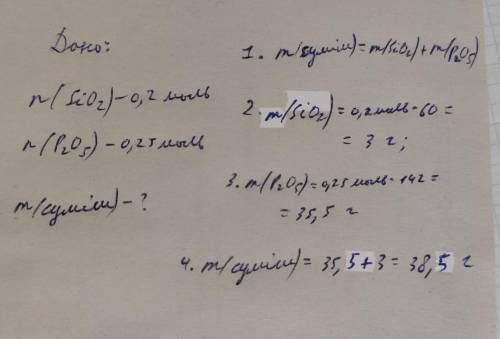 Дано:
n(SiO₂) – 0,2 моль
n(P₂O₅) – 0,25 моль
m(суміші) – ?
1. m(суміш) = m(SiO₂) + m(P₂O₅)
2. m(SiO₂) = 0,2 моль · 60 =
= 3 г;
3. m(P₂O₅) = 0,25 моль · 142 =
= 35,5 г
4. m(суміш) = 35,5 + 3 = 38,5 г